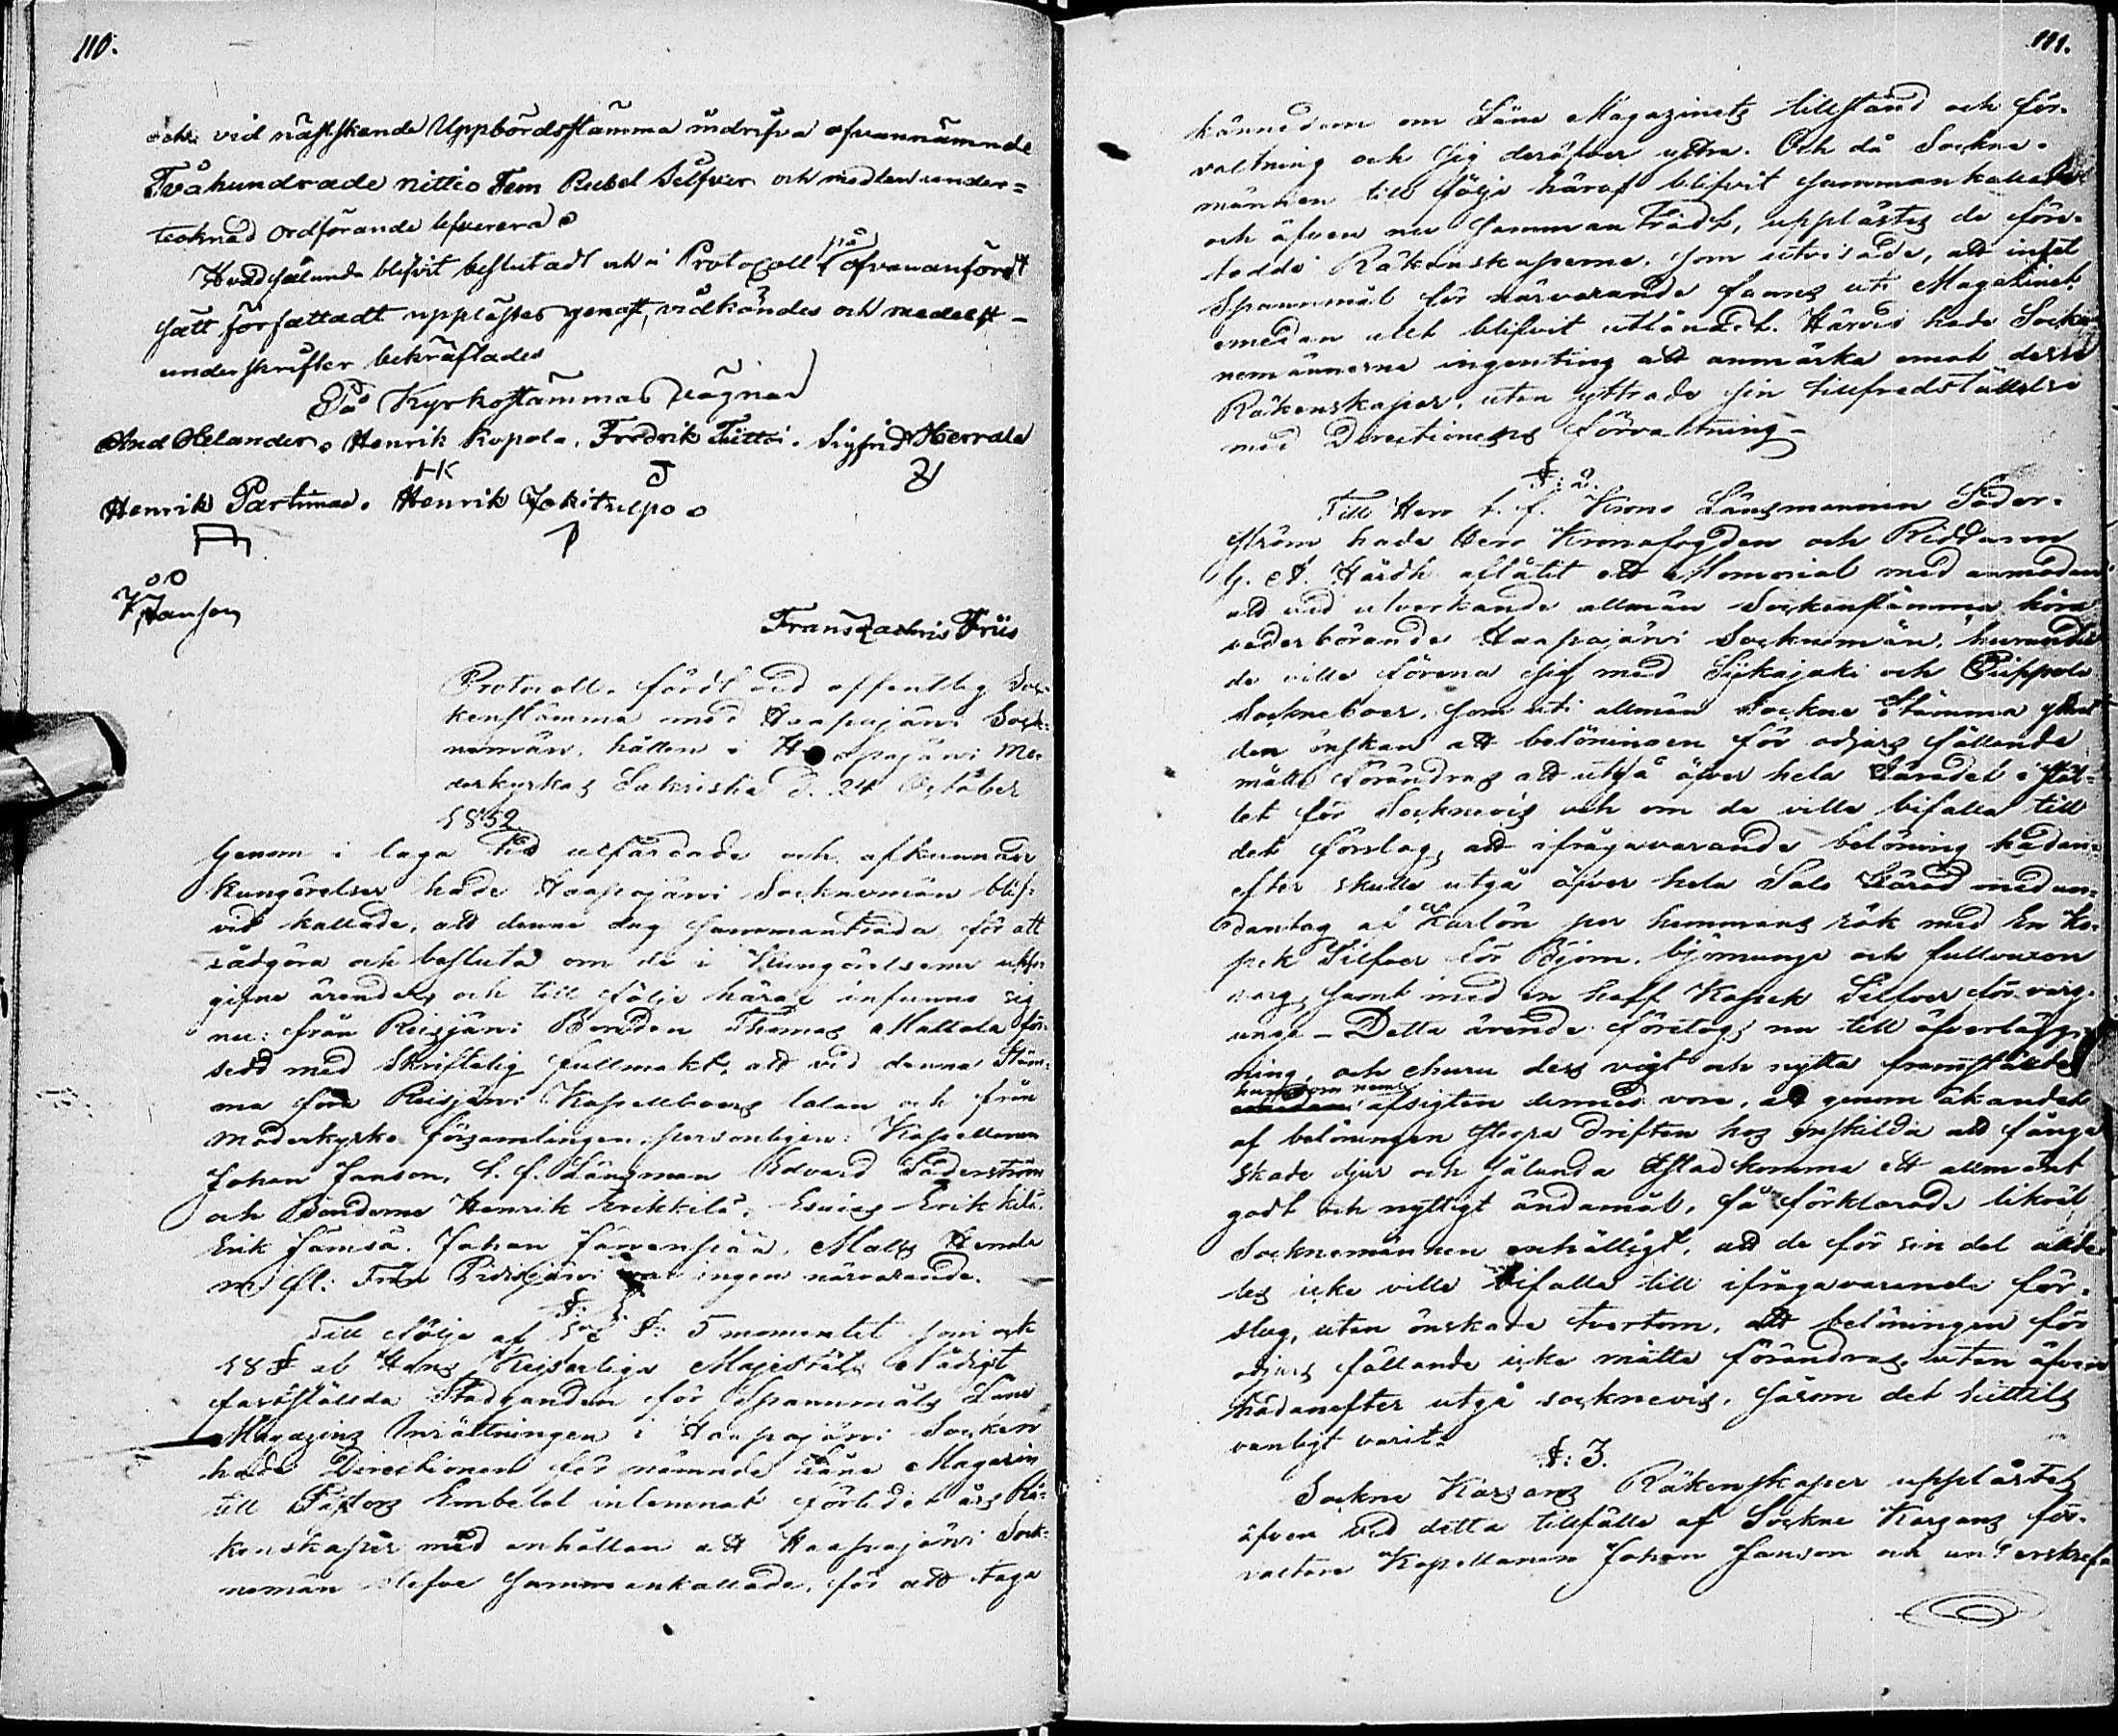 110.
och vid nästskende Uppbördsstämma indrifva ofvannämnde
Tvåhundrade nittio Fem Rubel Silfver och medlen under-
tecknad ordförande lefverera.
Hvad sålunda blifvit beslutadt och i Protocoll på ofvananfördt
sätt författadt upplästes genast, vidkändes och medelst
underskrifter bekräftades
På Kyrkostämmas vägnar
And Helander. Henrik Kopola. Fredrik Tüttoi. Sigfrid Herrala
HK
Henrik Partima. Henrik Jokitulpo.
J Janson
Frans Zachris Friis
Protocoll, fördt vid offentlig Soc-
kenstämma med Haapajärvi Sock-
nemän, hållen i Haapajärvi Mo-
derkyrkas Sakristia d. 24 October
1852
Genom i laga tid utfärdade och afkunnade
kungörelser hade Haapajärvi Socknemän blif-
vit kallade, att denne dag sammanträda för att
rådgöra och besluta om de i Kungörelserne upp-
gifne ärender, och till följe häraf infunno sig
nu: från Reisjärvi Bonden Thomas Mattala för-
sedd med skriftelig fullmakt, att vid denna Stäm-
ma föra Reisjärvi Kapellboers talan och från
Moderkyrko församlingen, personligen: Kapellanen
Johan Janson, t. f. Länsman Edvard Söderström
och Bönderne Henrik Erikkilä, Esaias Erikkilä,
Erik Jämsä, Johan Järvenpää, Matts
m. fl: Från Pidisjärvi var ingen närvarande.
§: 1.
Till följe af 5 § 5 momentet som ock
18 § af Hans Kejserliga Majestäts Nådigt
fastställda Stadganden för Spannmåls Låne
Magazins Inrättningen i Haapajärvi Socken
hade Directionen för nämnde Låne Magazin
till Pastors Embetet inlemnat förledet års Rä-
kenskaper med anhållan att Haapajärvi Sock-
nemän blefve sammankallade, för att taga
111.
kännedom om Låne Magazinets tillstånd och för-
valtning och sig deröfver yttra. Och då Sockne-
männen till följe häraf blifvit sammankallade
och äfven nu sammanträdt, upplästes de före-
tedde Räkenskaperne, som utvisade, att intet
Spannmål för närvarande fanns uti Magazinet,
emedan allt blifvit utlånadt. Härvid hade Sock-
nemännerne ingenting att anmärka emot desse
Räkenskaper, utan yttrade sin tillfredställelse
med Directionens förvaltning-
§: 2.
Till Herr t. f. Krono Länsmannen Söder-
ström hade Herr Kronofogden och Riddaren
G. A. Hårdh aflåtit ett Memorial med anmodan
att vid utverkande allmän Sockenstämma höra
vederbörande Haapajärvi Socknemän, huruvida
de ville förena sig med Siikajoki och Piippola
Sockneboer, som uti allmän Sockne Stämma yttrat
den önskan att belöningen för odjurs fällande
måtte förändras att utgå öfver hela Häradet i stäl-
let för Socknevis och om de ville bifalla till
det förslag, att ifrågavarande belöning hädan-
efter skulle utgå öfver hela Salo Härad med un-
dantag af Karlön per hemmans rök med En Ko-
pek Silfver för Björn, björnunge och fullvuxen
varg, samt med en half Kopek Silfver för varg-
unge - Detta ärende företogs nu till öfverlägg-
ning, och ehuru dess vigt och nytta framställdes
hurusom neml. afsigten dermed vore, att genom ökandet
af belöningen stegra driften hos enskilda att fånga
skade djur och sålunda åstadkomma ett allmänt
godt och nyttigt ändamål, så förklarade likväl
Socknemännen enhälligt, att de för sin del allde-
les icke ville bifalla till ifrågavarande för-
slag, utan önskade tvertom, att belöningen för
odjurs fällande icke måtte förändras, utan äfven
hädanefter utgå socknevis, såsom det hittills
vanligt varit.
§: 3.
Sockne Kassans Räkenskaper upplästes
äfven vid detta tillfälle af Sockne Kassans för-
valtare Kapellanen Johan Janson och